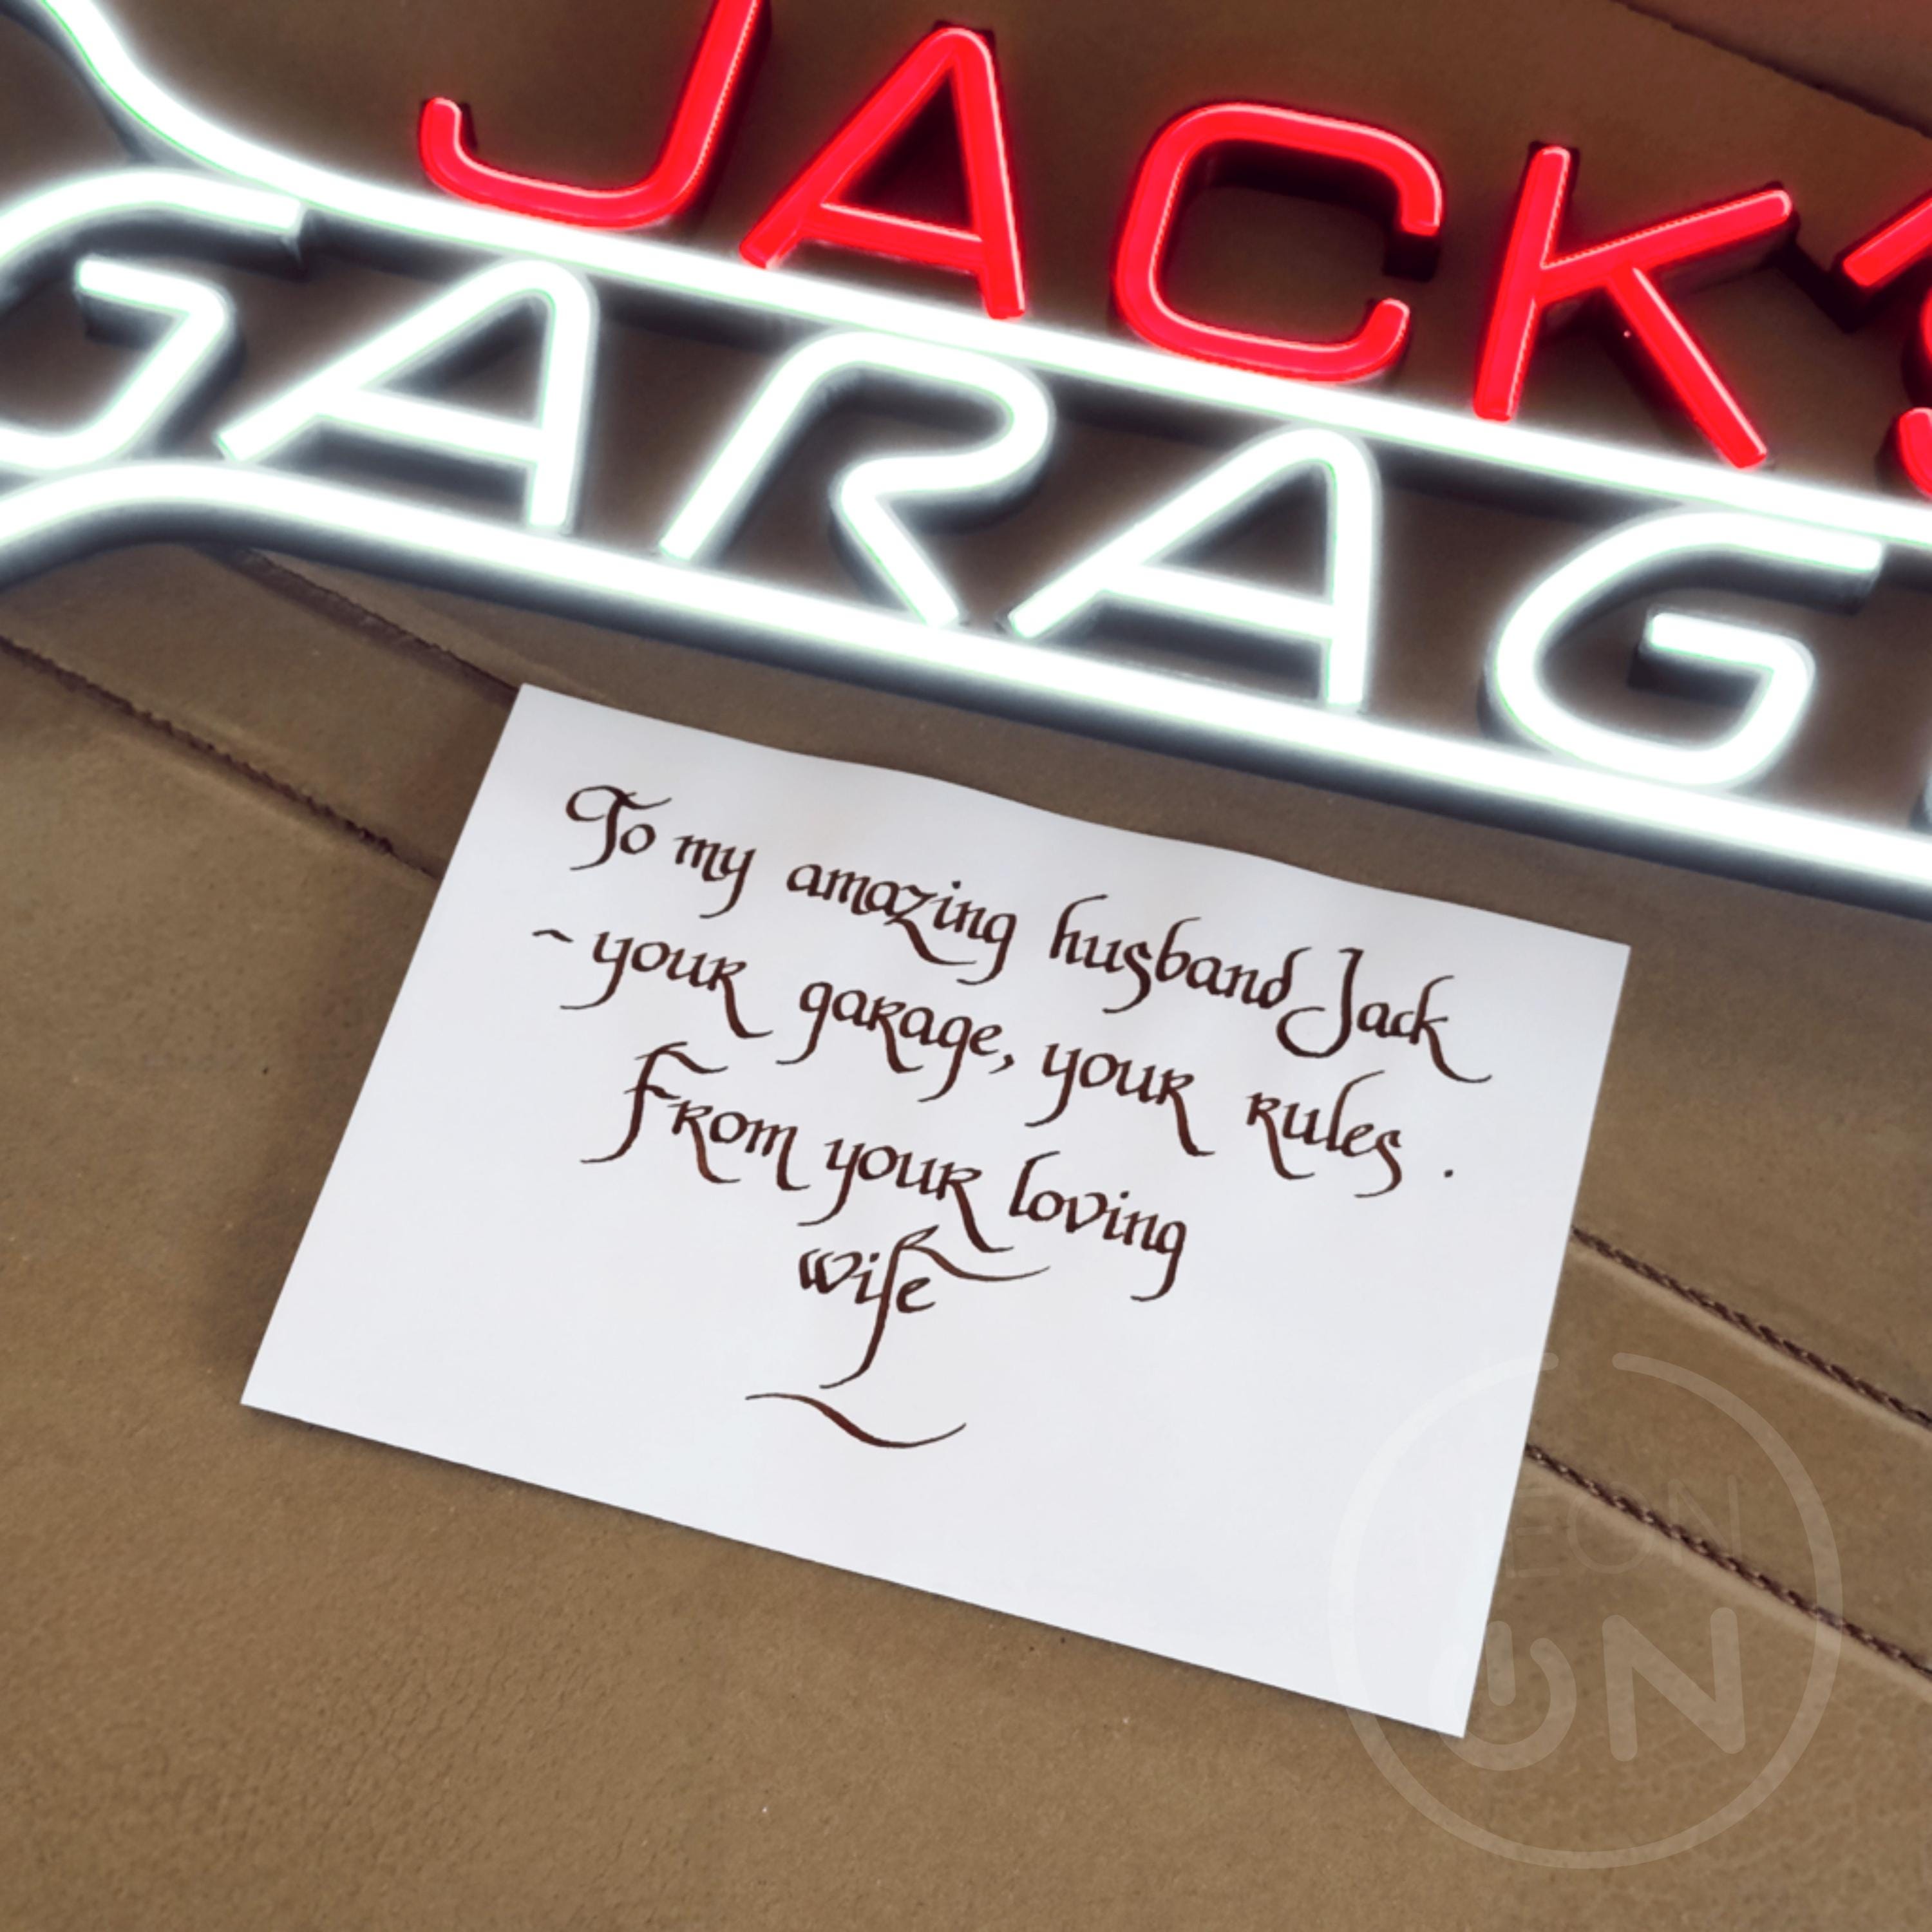 JACK'S
GARAG
To my amazing husband Jack
~ your garage, your rules.
From your loving
wife
ON